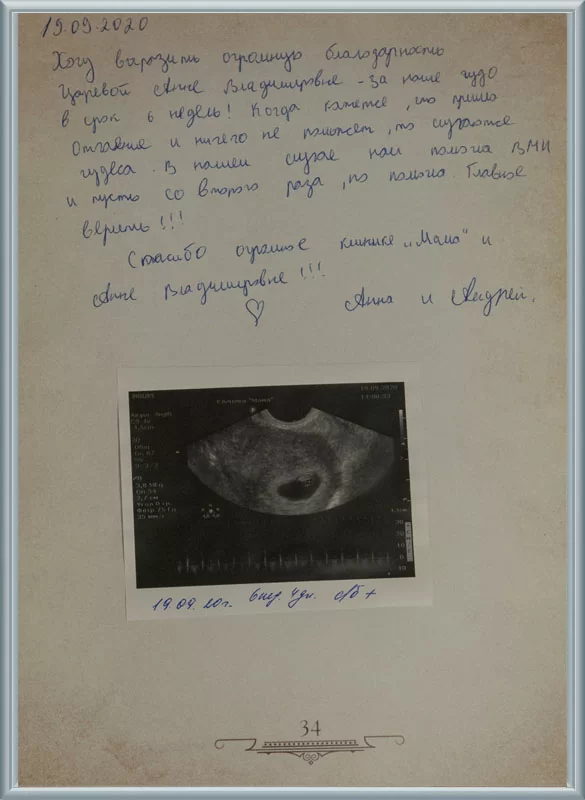 19.09.2020
Хочу выразить огромную благодарность
Царевой Анне Владимировне - за наше чудо
в срок 6 недель! Когда кажется, что пришло
отчаяние и ничего не поможет, то случаются
чудеса. В нашем случае нам помогла ВМИ
и пусть со второго раза, но помогла. Главное
верить!!!
Спасибо огромное клинике „Мама" и
Анне Владимировне!!!
Анна и Андрей.
PHILIPS
Клиника "Мама"
19/09/2020
2D
Общ
3,7 см
35 мм/с
19.09.20г. 6нед. 4дн. сб +
34